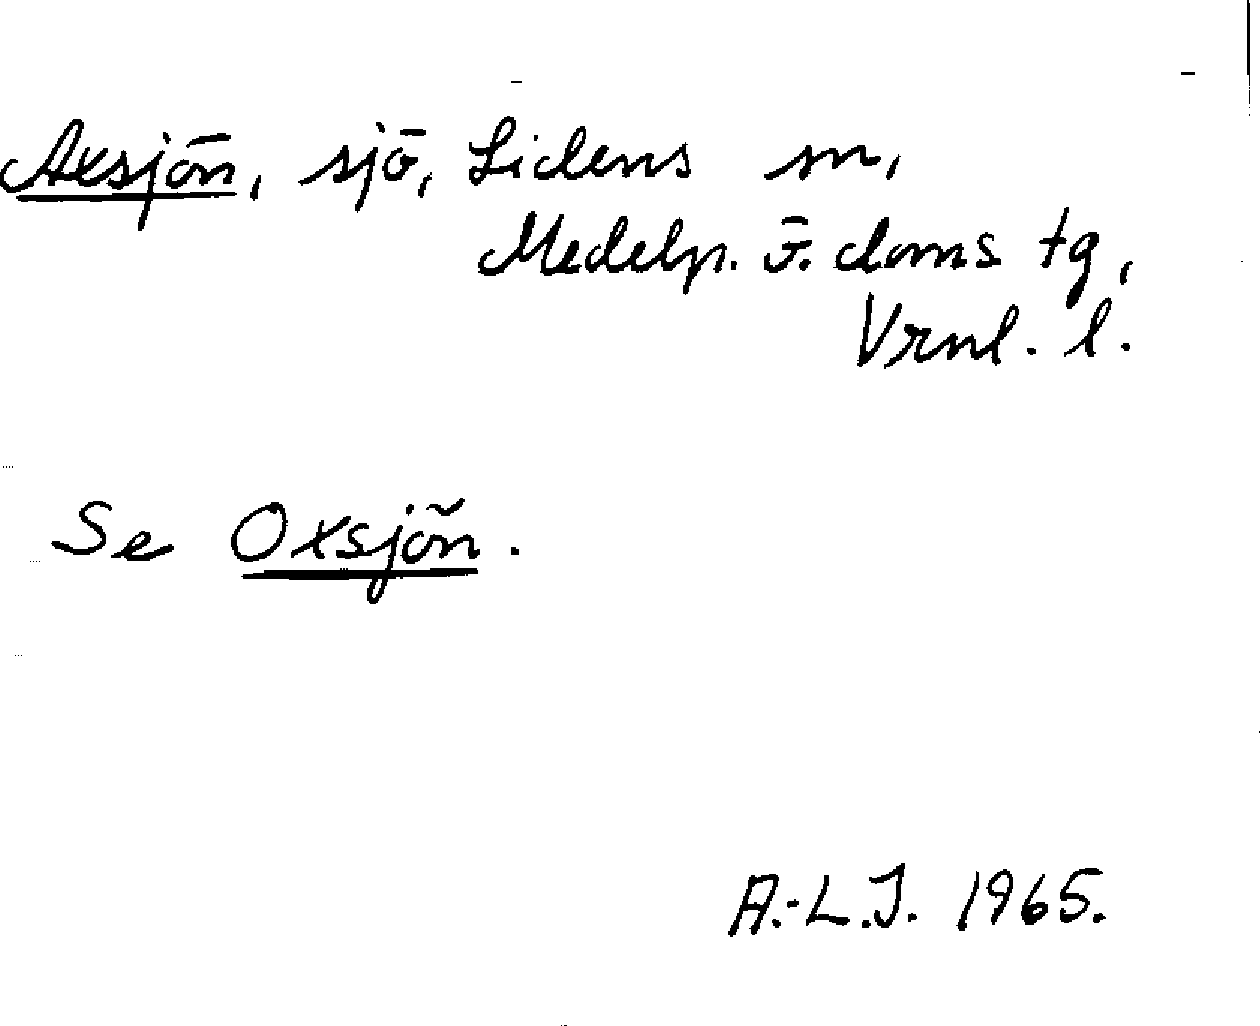 Axsjön, sjö, Lidens sn,
Medelp. ö. doms tg,
Vrnl. l.
Se Oxsjön.
A.-L.J. 1965.